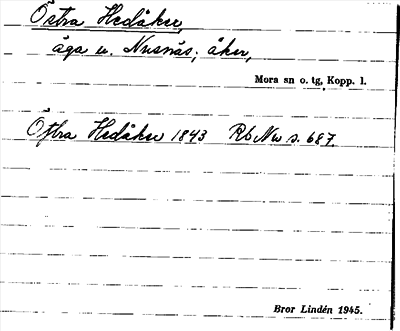 Östra Hedåker,
äga u. Nusnäs; åker,
Mora sn o. tg, Kopp. l.
Östra Hedåker 1843 Rb Nw s. 687.
Bror Lindén 1945.